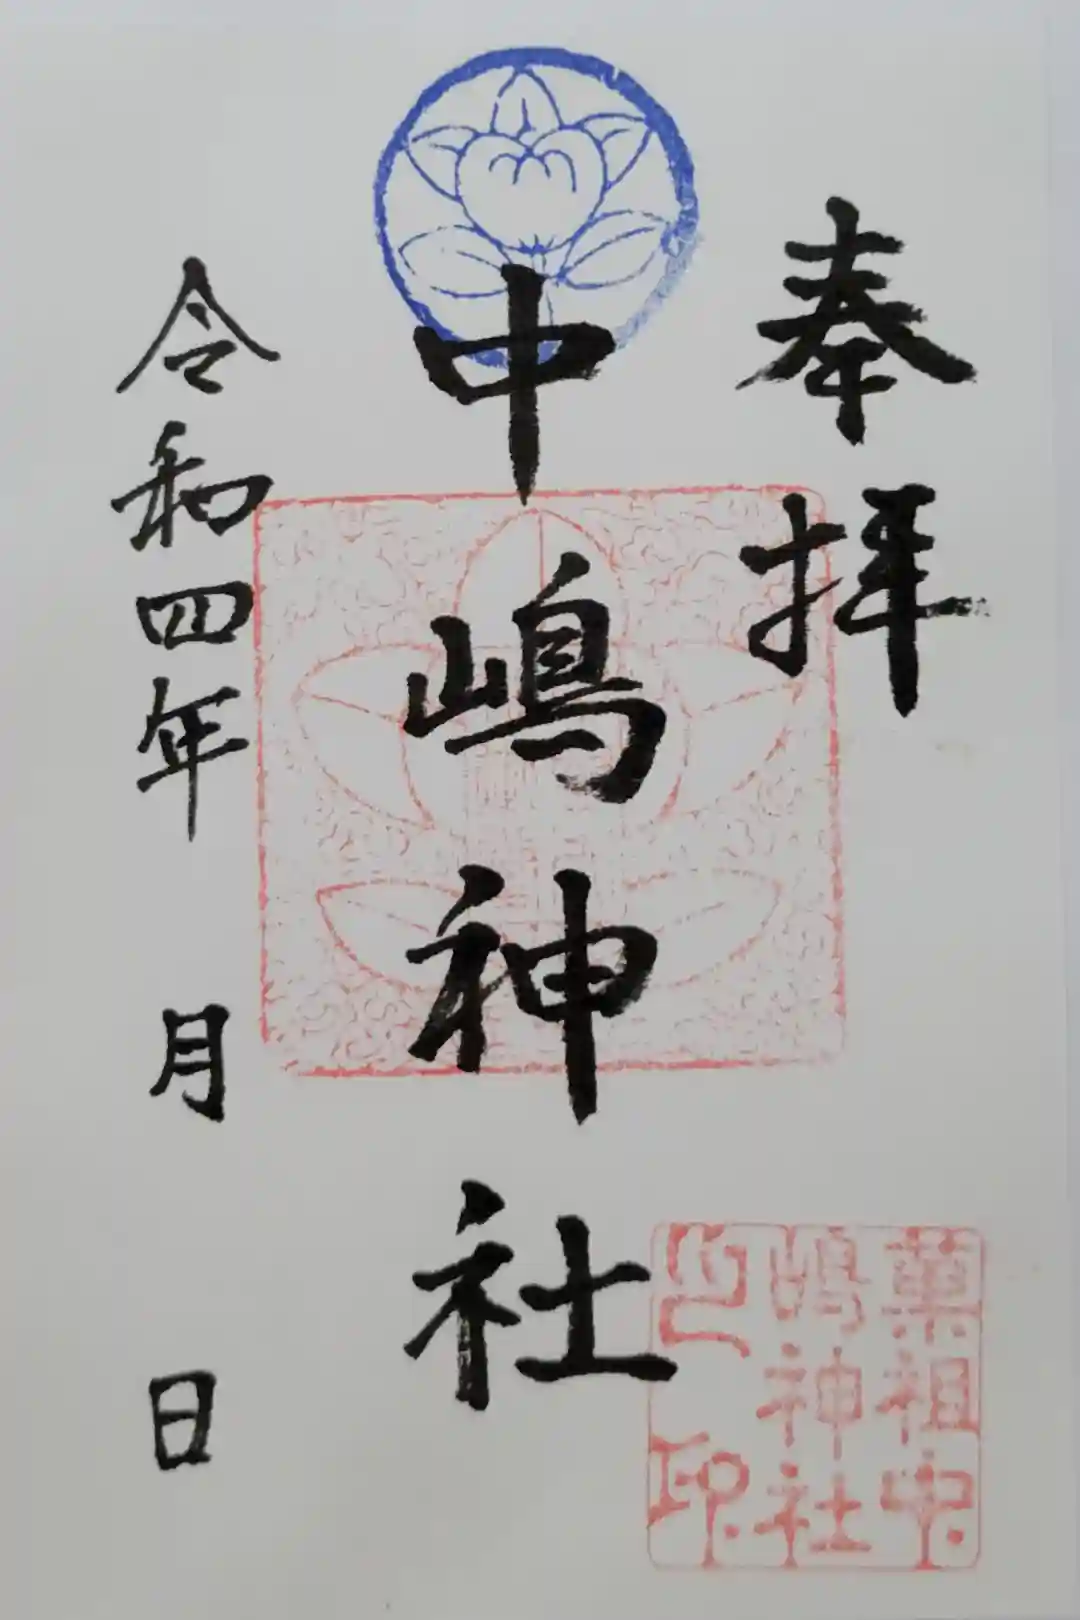 奉拝
中嶋神社
令和四年 月 日
菓祖中
嶋神社
之印